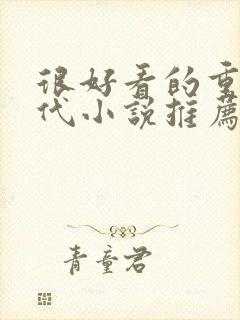 很好看的重
代小說推薦
青童君